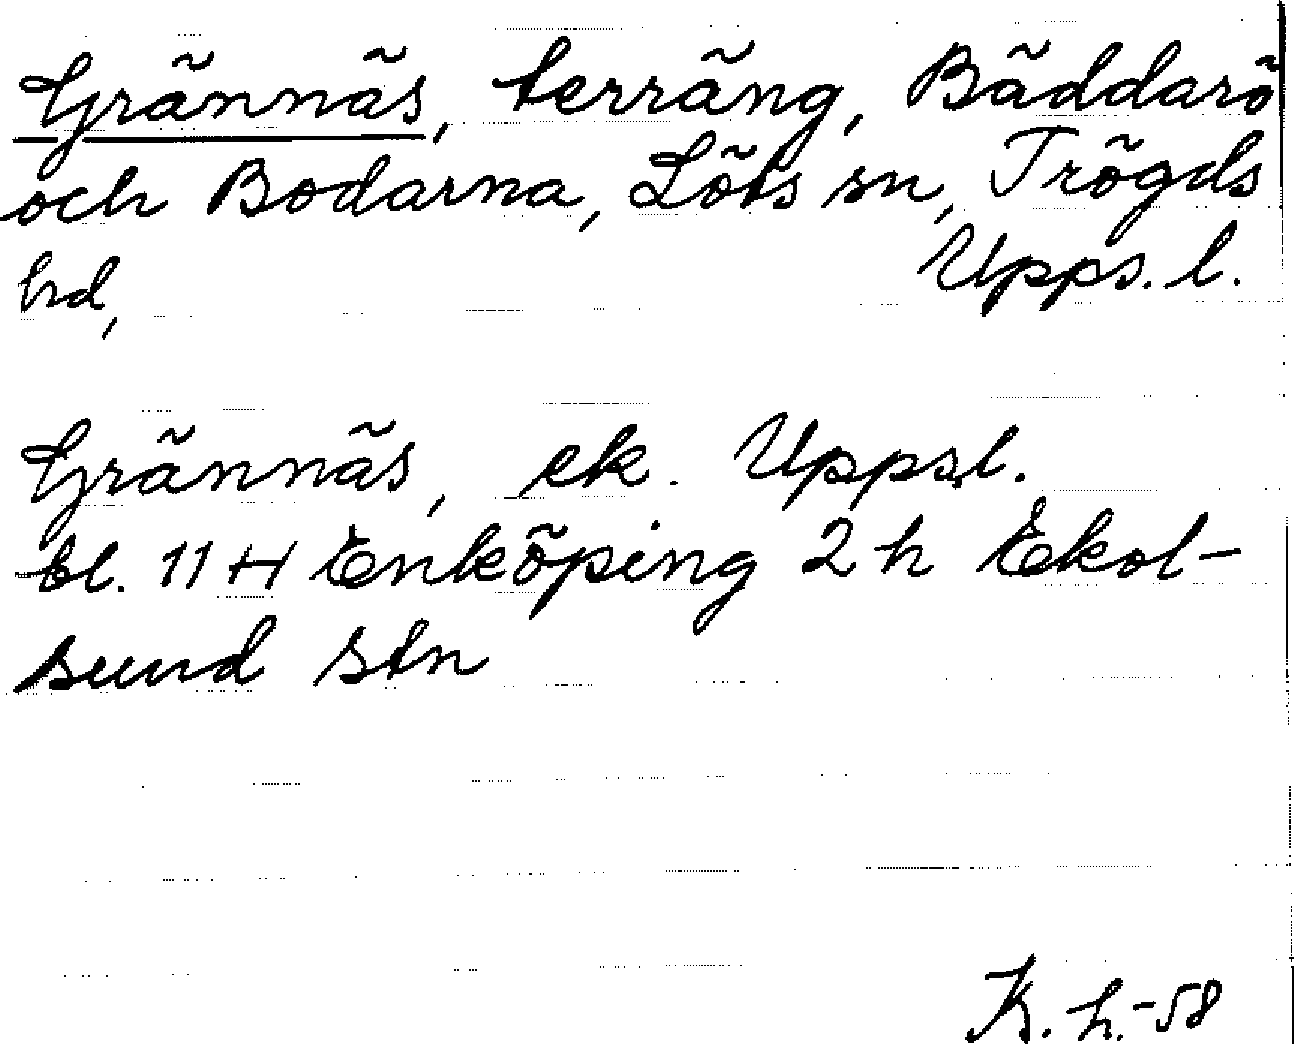 Grännäs, terräng, Bäddarö
och Bodarna, Löts sn, Trögds
hd, Upps. l.
Grännäs, ek. Uppsl.
bl. 11 H Enköping 2 h Ekol-
sund stn
K. h. -58